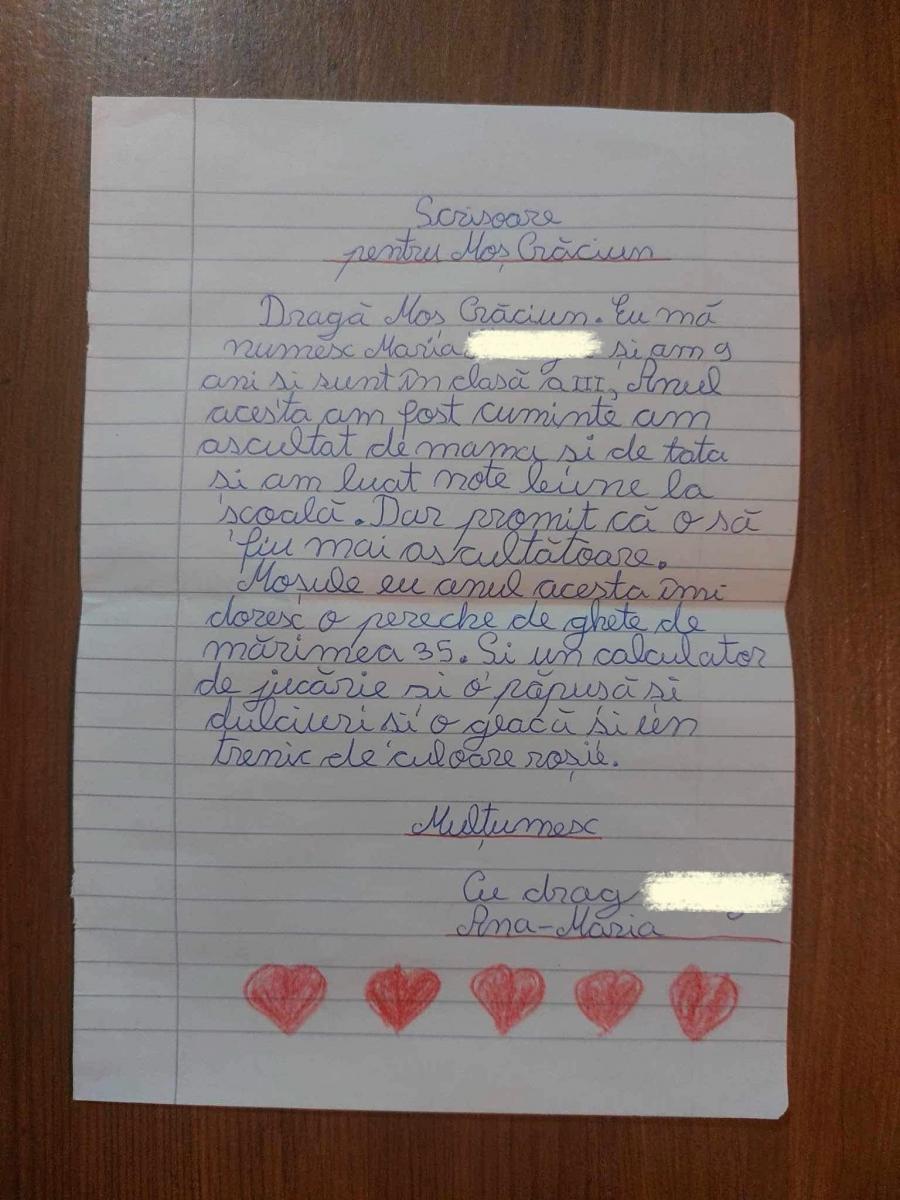 Scrisoare
pentru Moș Crăciun
Dragă Moș Crăciun. Eu mă
numesc Maria și am 9
ani si sunt în clasă a III, Anul
acesta am fost cuminte am
ascultat de mama si de tata
și am luat note biune la
școală. Dar promit că o să
fiu mai ascultătoare.
Moșule eu anul acesta îmi
doresc o pereche de ghete de
mărimea 35. Si un calculator
de jucărie si o păpusă si
dulciuri si o geacă si un
trenic de culoare roșie.
Mulțumesc
Cu drag
Ana-Maria